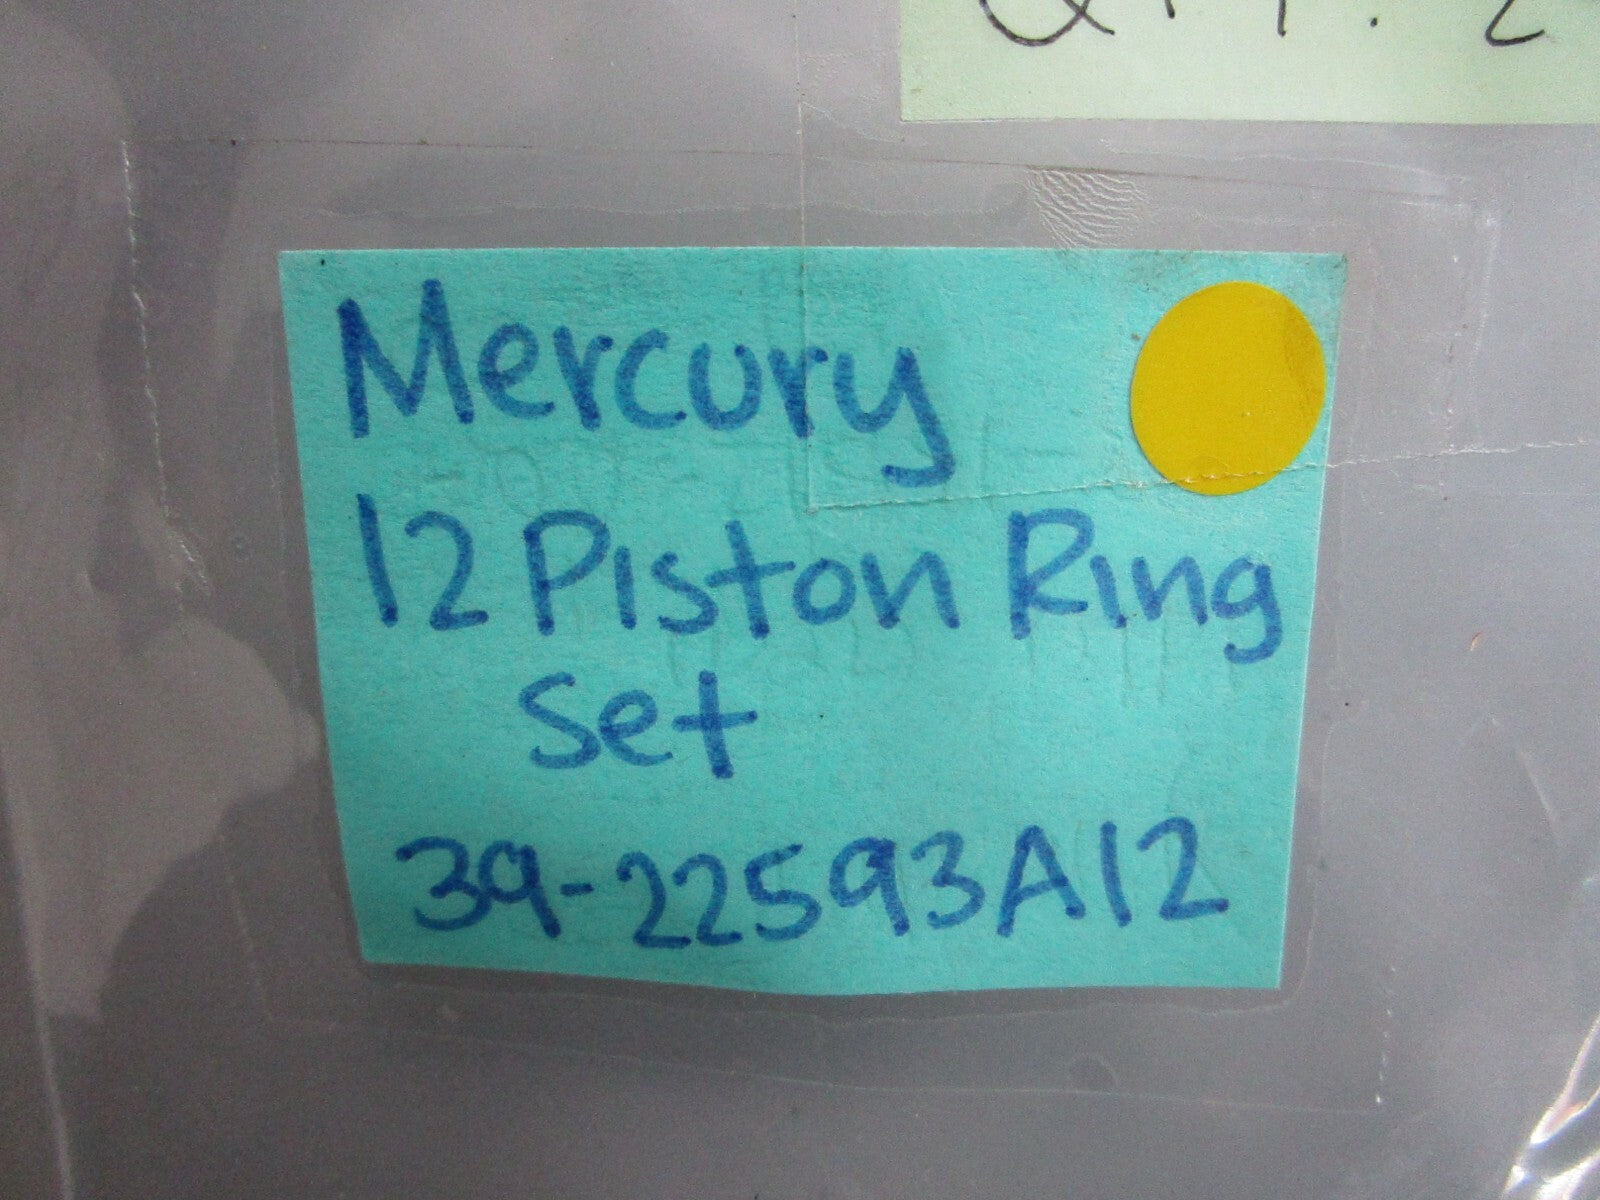 QTY. 2
Mercury
12 Piston Ring
Set
39-22593A12